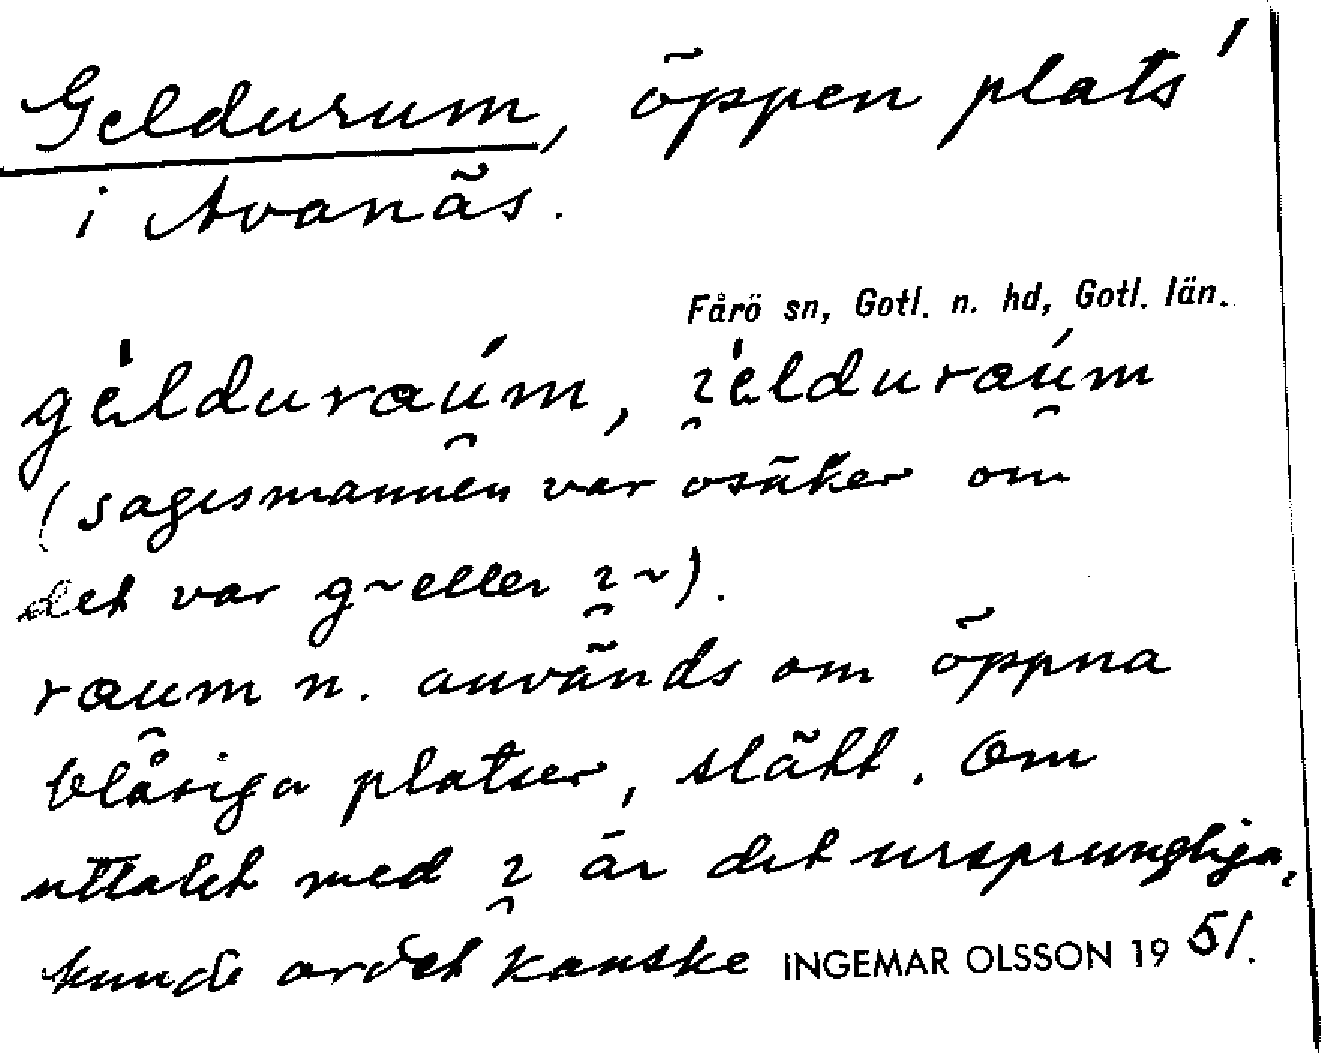 Geldurum, öppen plats
i Avanäs.
Fårö sn, Gotl. n. hd, Gotl. län.
gèlduraúm, ꝛèlduraúm
(sagesmannen var osäker om
det var g~ eller ꝛ~).
raum n. används om öppna
blåsiga platser, slätt. Om
uttalet med ꝛ är det ursprungliga,
kunde ordet kanske INGEMAR OLSSON 1951.